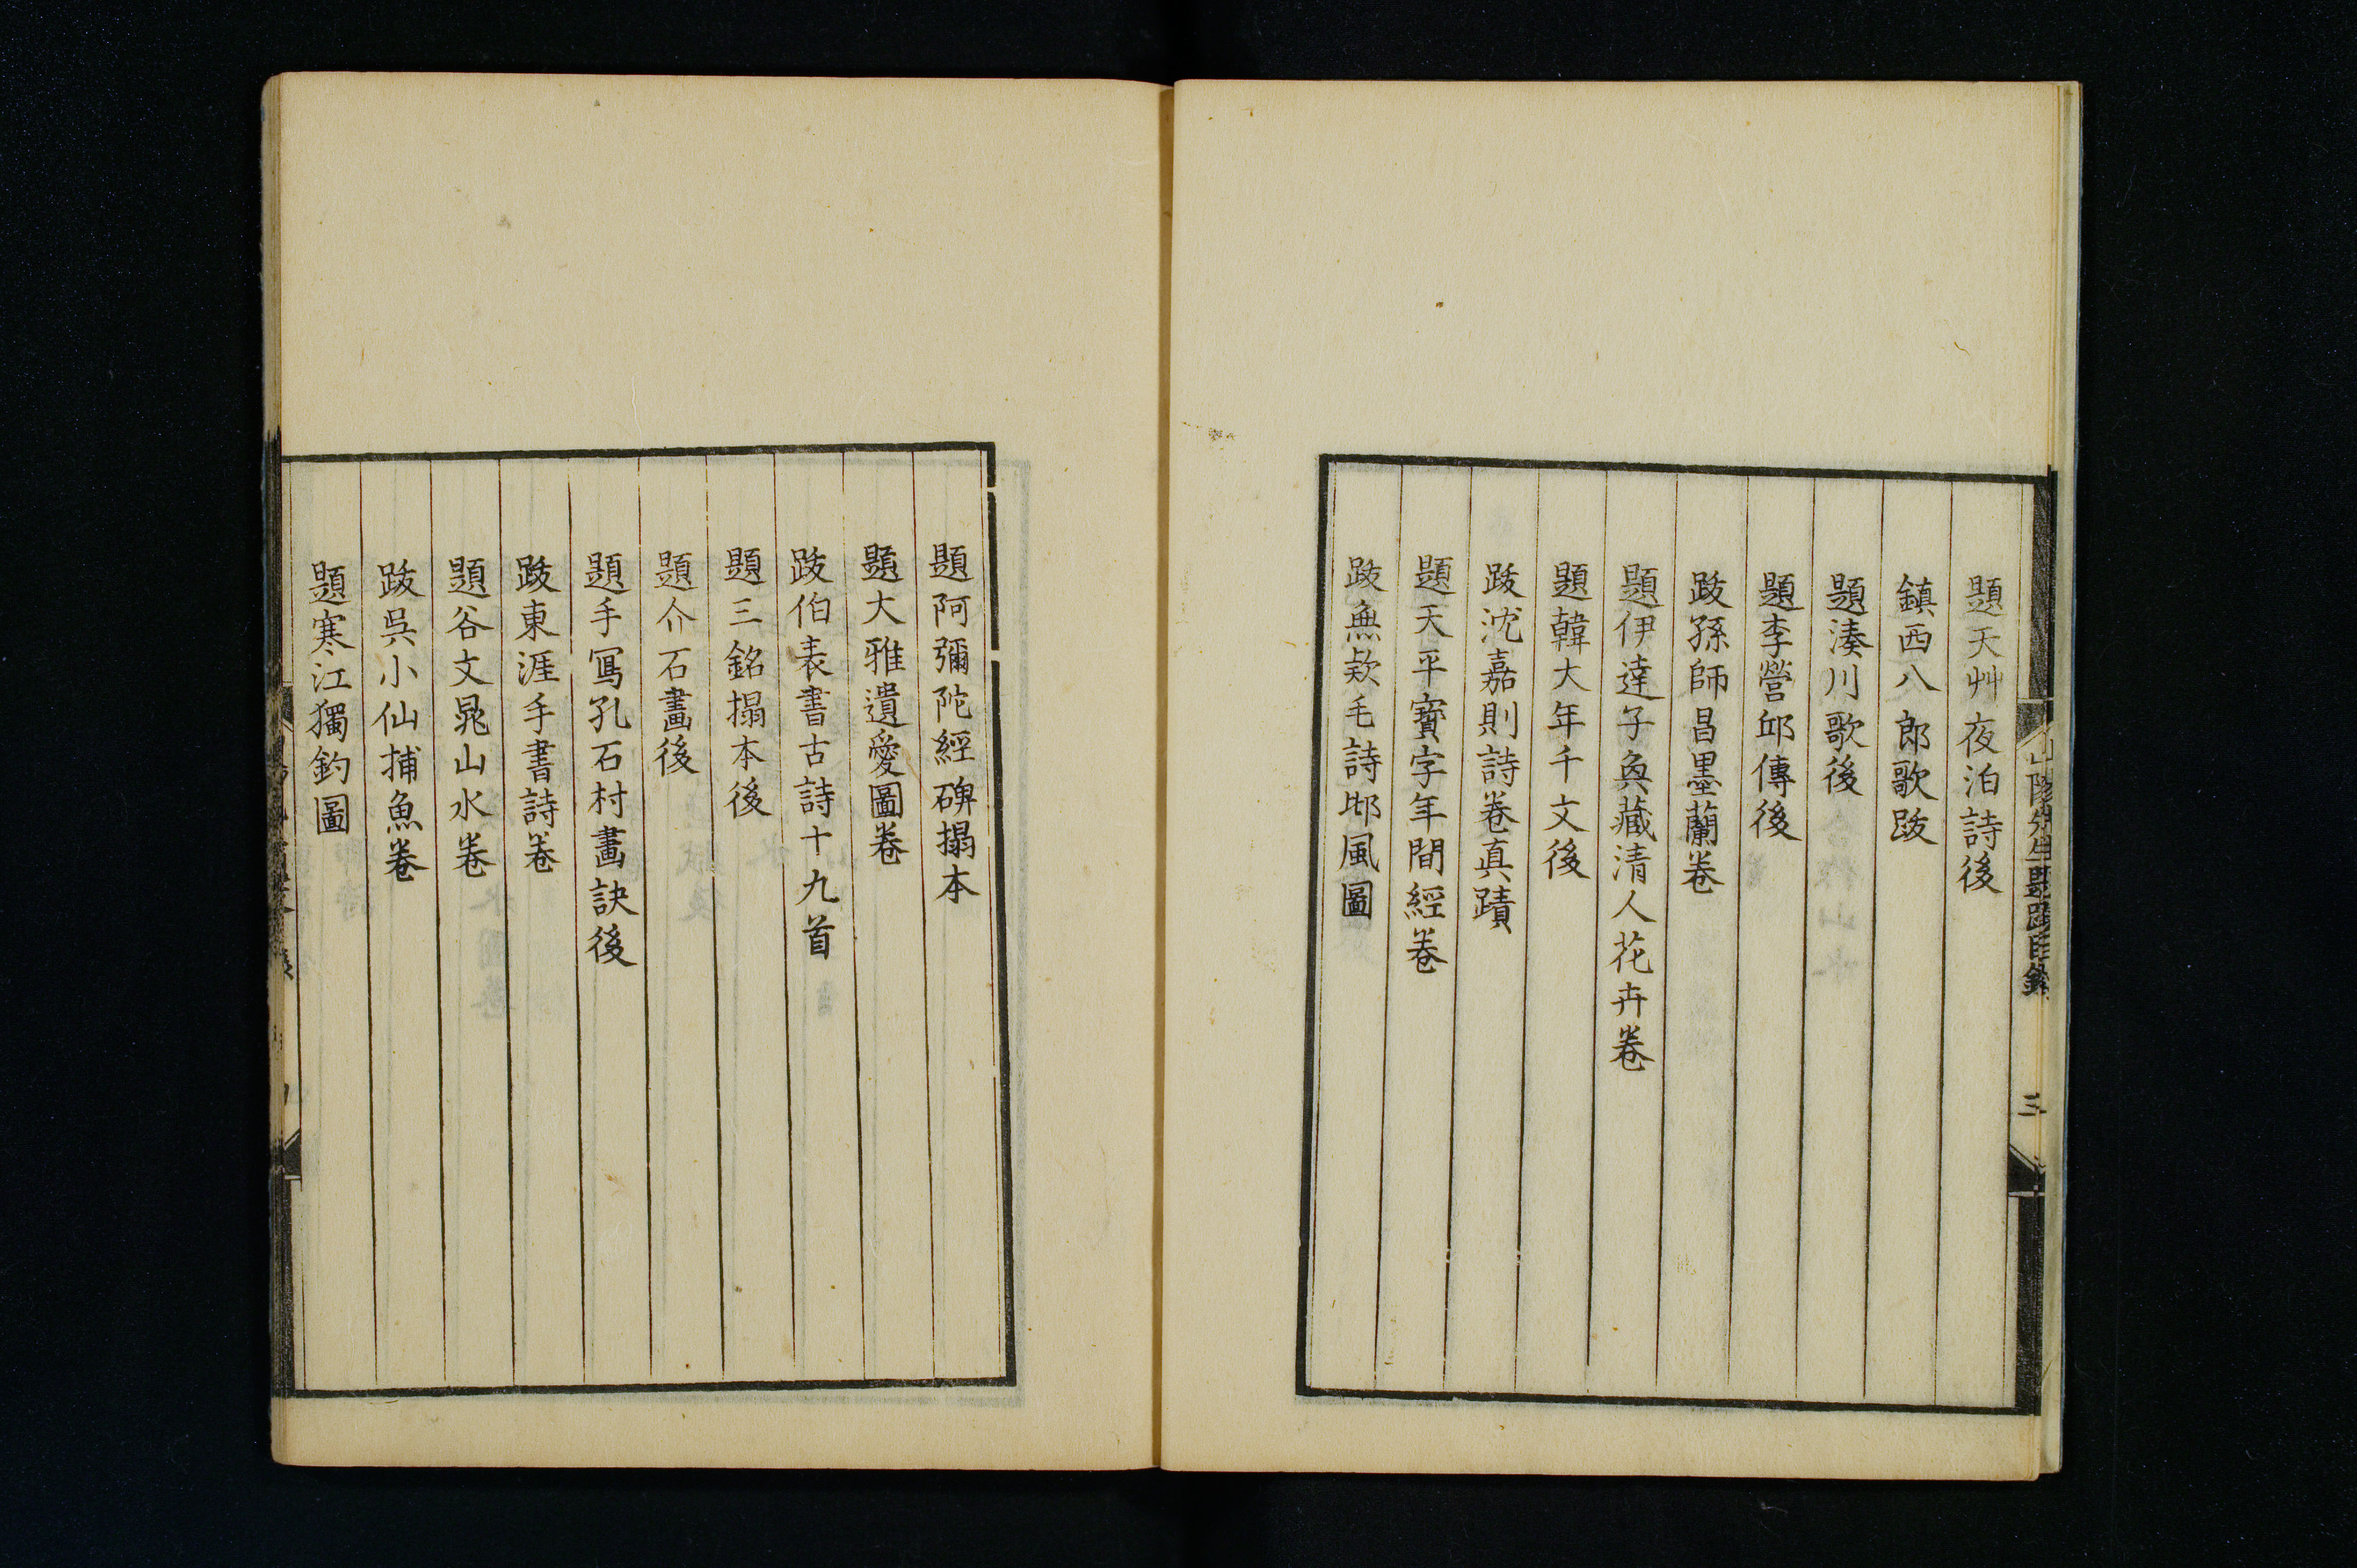 題天艸夜泊詩後
鎮西八郎歌跋
題湊川歌後
題李營邱傳後
跋孫師昌墨蘭卷
題伊達子奐藏清人花卉卷
題韓大年千文後
跋沈嘉則詩卷真蹟
題天平寶字年間經卷
跋無欵毛詩邶風圖
山陽先生題跋目錄
三
題阿彌陀經碑搨本
題大雅遺愛圖卷
跋伯表書古詩十九首
題三銘搨本後
題介石畫後
題手寫孔石村畫訣後
跋東涯手書詩卷
題谷文晁山水卷
跋吳小仙捕魚卷
題寒江獨釣圖